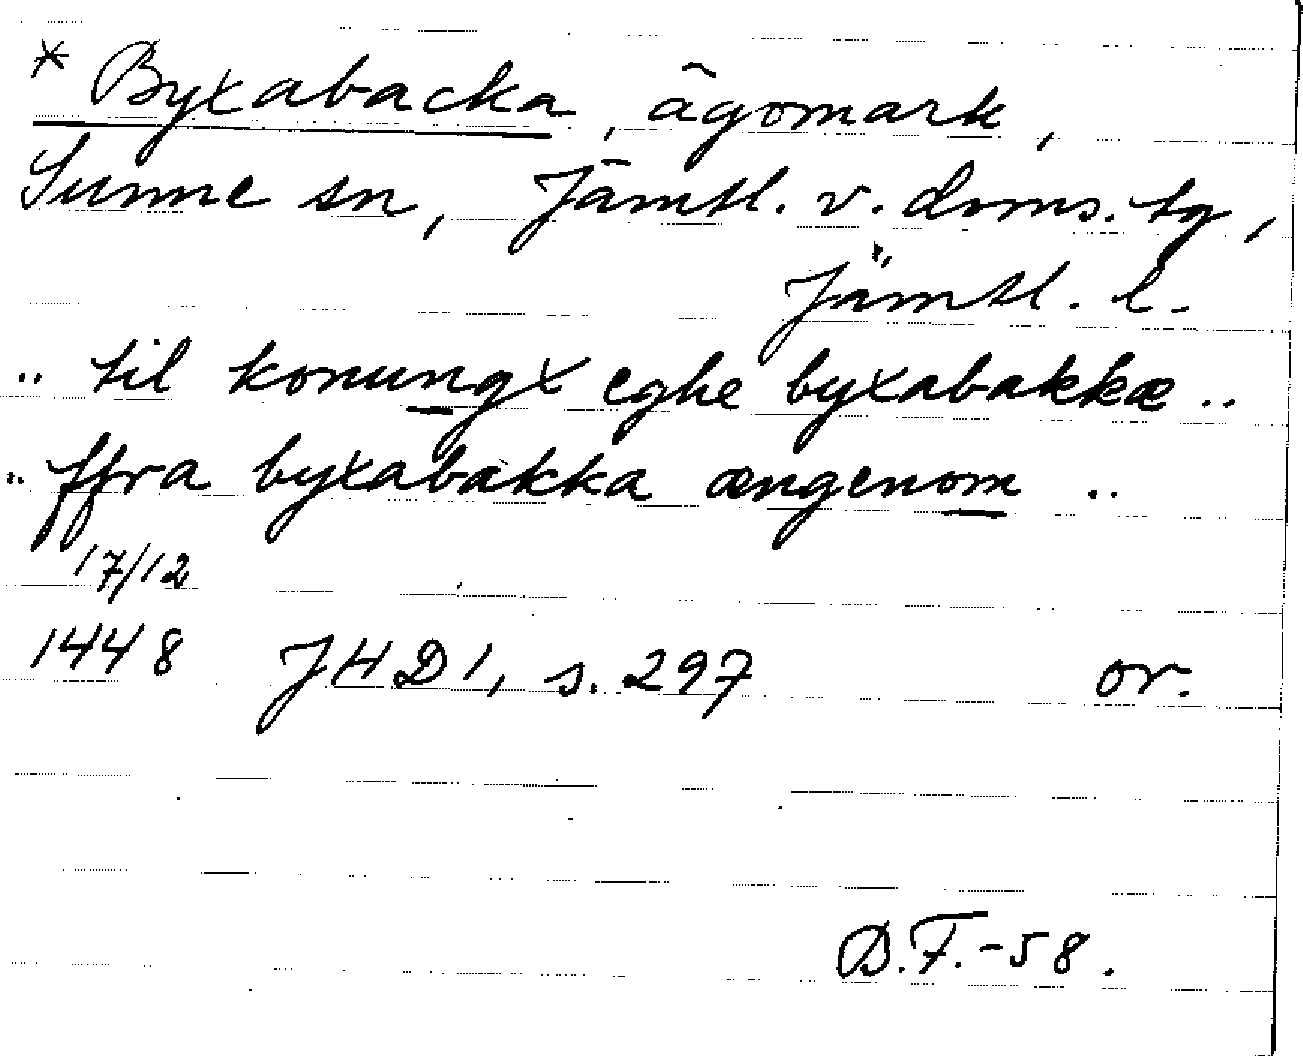 * Byxabacka, ägomark,
Sunne sn, Jämtl. v. doms. tg,
Jämtl. l.
.. til konungx eghe byxabakkæ ..
.. ffra byxabakka ængenom ..
17/12
1448 JHD 1, s. 297 or.
D.F.-58.